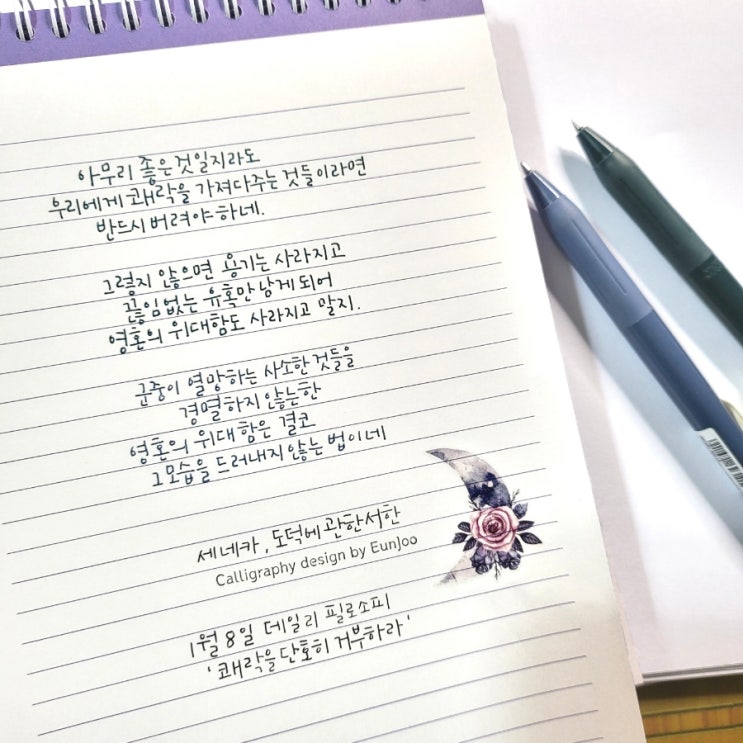 아무리 좋은것일지라도
우리에게 쾌락을 가져다주는 것들이라면
반드시 버려야 하네.
그렇지 않으면 용기는 사라지고
끊임없는 유혹만 남게 되어
영혼의 위대함도 사라지고 말지.
군중이 열망하는 사소한 것들을
경멸하지 않는한
영혼의 위대함은 결코
그모습을 드러내지 않는 법이네
세네카, 도덕에 관한서한
Calligraphy design by EunJoo
1월 8일 데일리 필로소피
'쾌락을 단호히 거부하라'